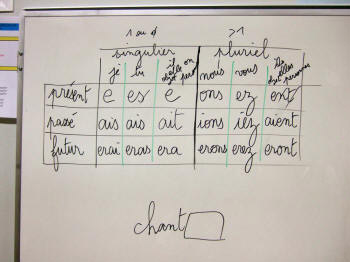 1 ou 0 >1
singulier pluriel
je tu il elle on nous vous ils elles
présent e es e ons ez ent
passé ais ais ait ions iez aient
futur erai eras era erons erez eront
chant